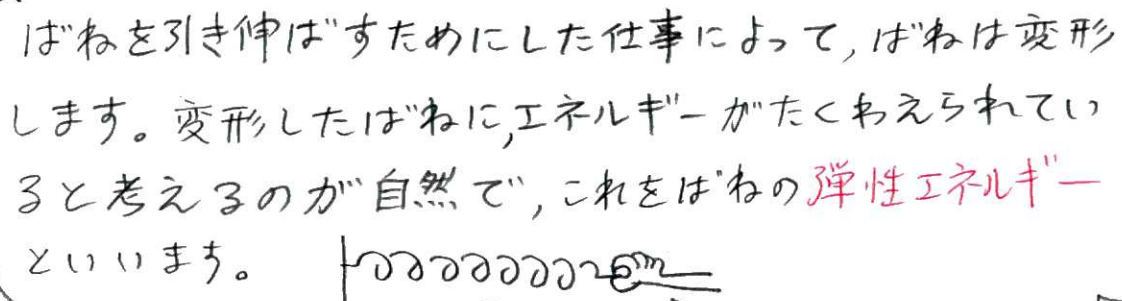 ばねを引き伸ばすためにした仕事によって,ばねは変形
します。変形したばねに,エネルギーがたくわえられてい
ると考えるのが自然で,これをばねの弾性エネルギー
といいます。